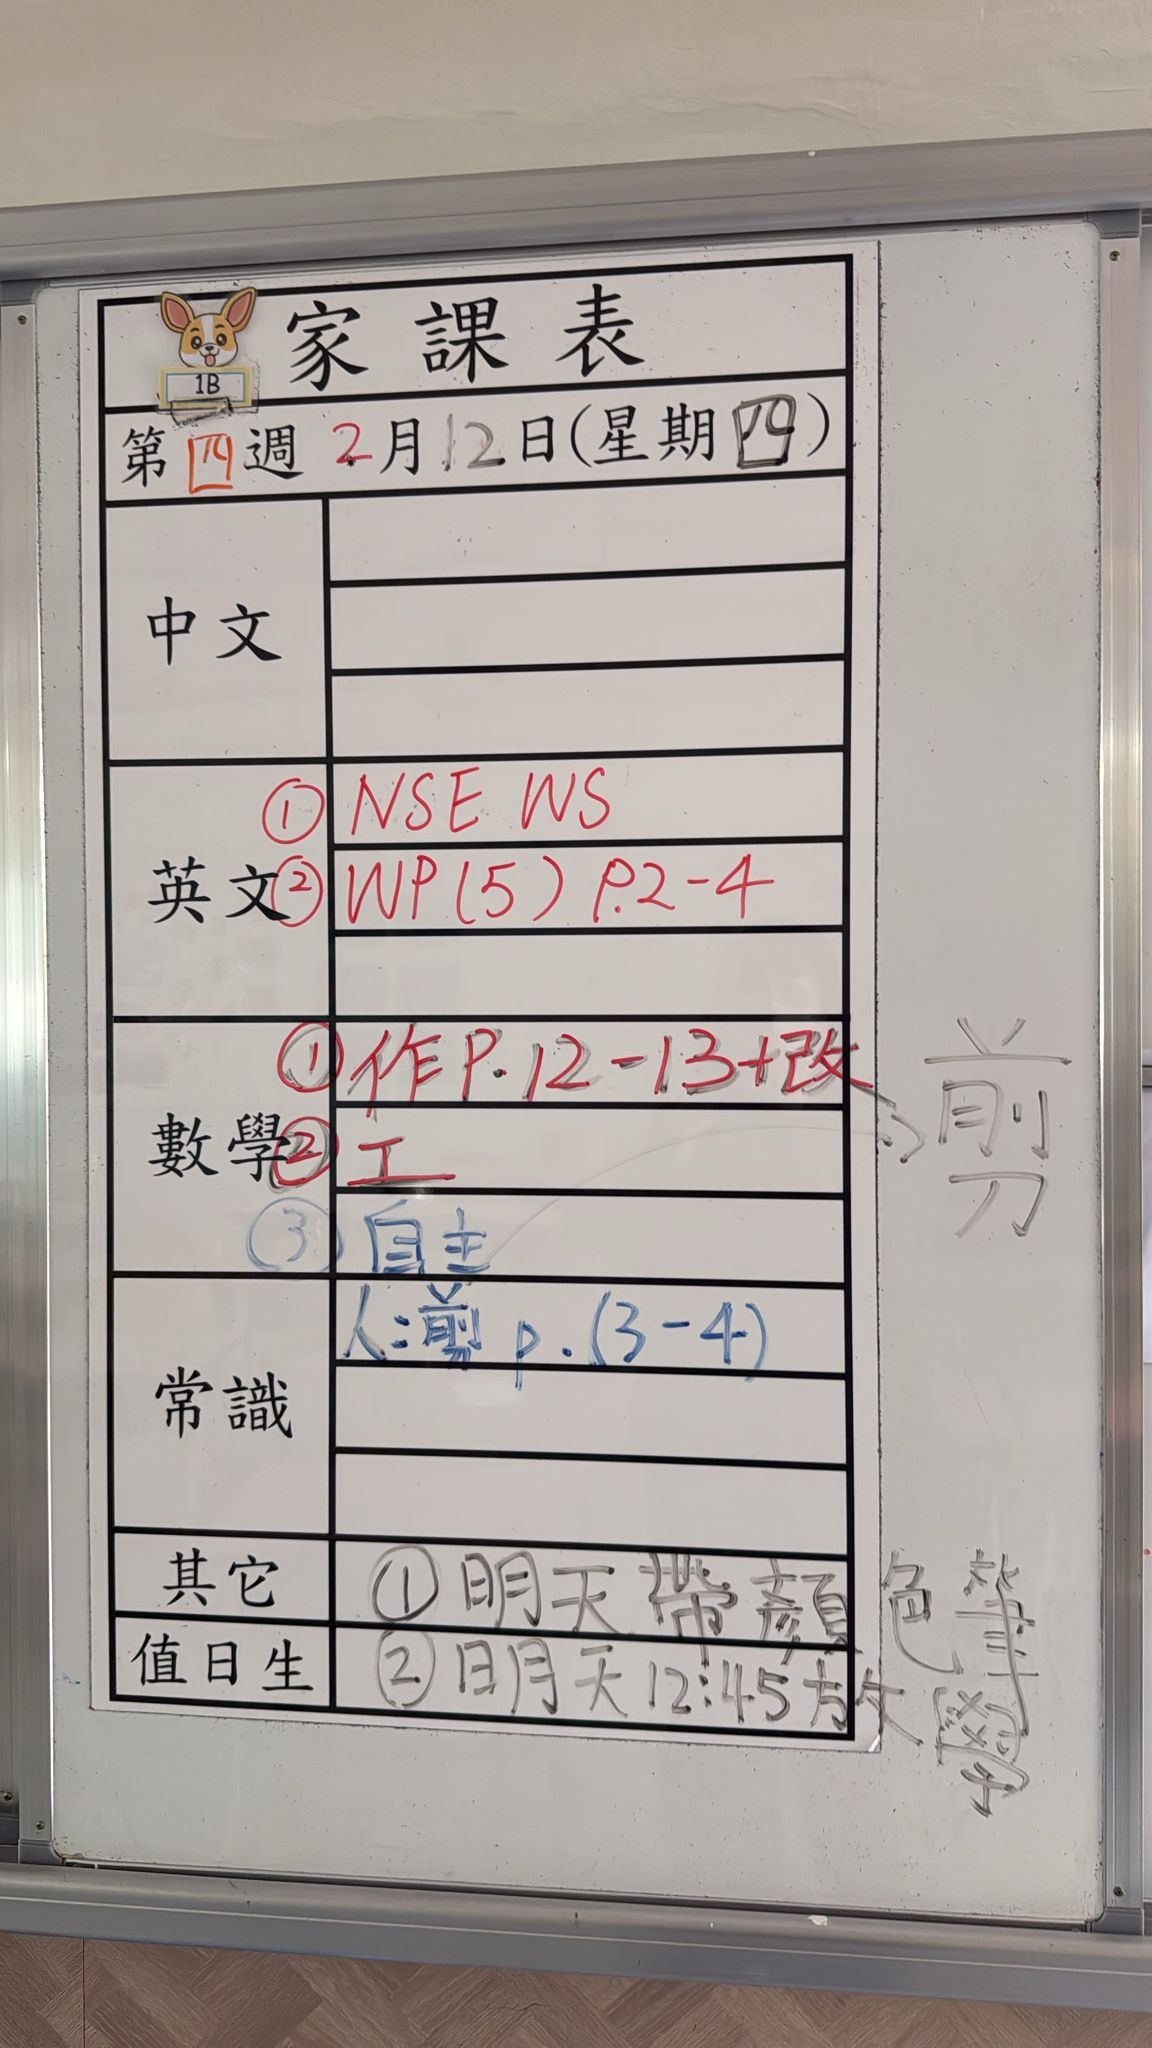 家課表
1B
第四週 2月12日(星期四)
中文
英文
① NSE WS
② WP(5) P.2-4
數學
① 作P.12-13+改
② 工
③ 自主
剪
常識
人:剪 p.(3-4)
其它
① 明天帶顏色筆
值日生
② 明天12:45放學